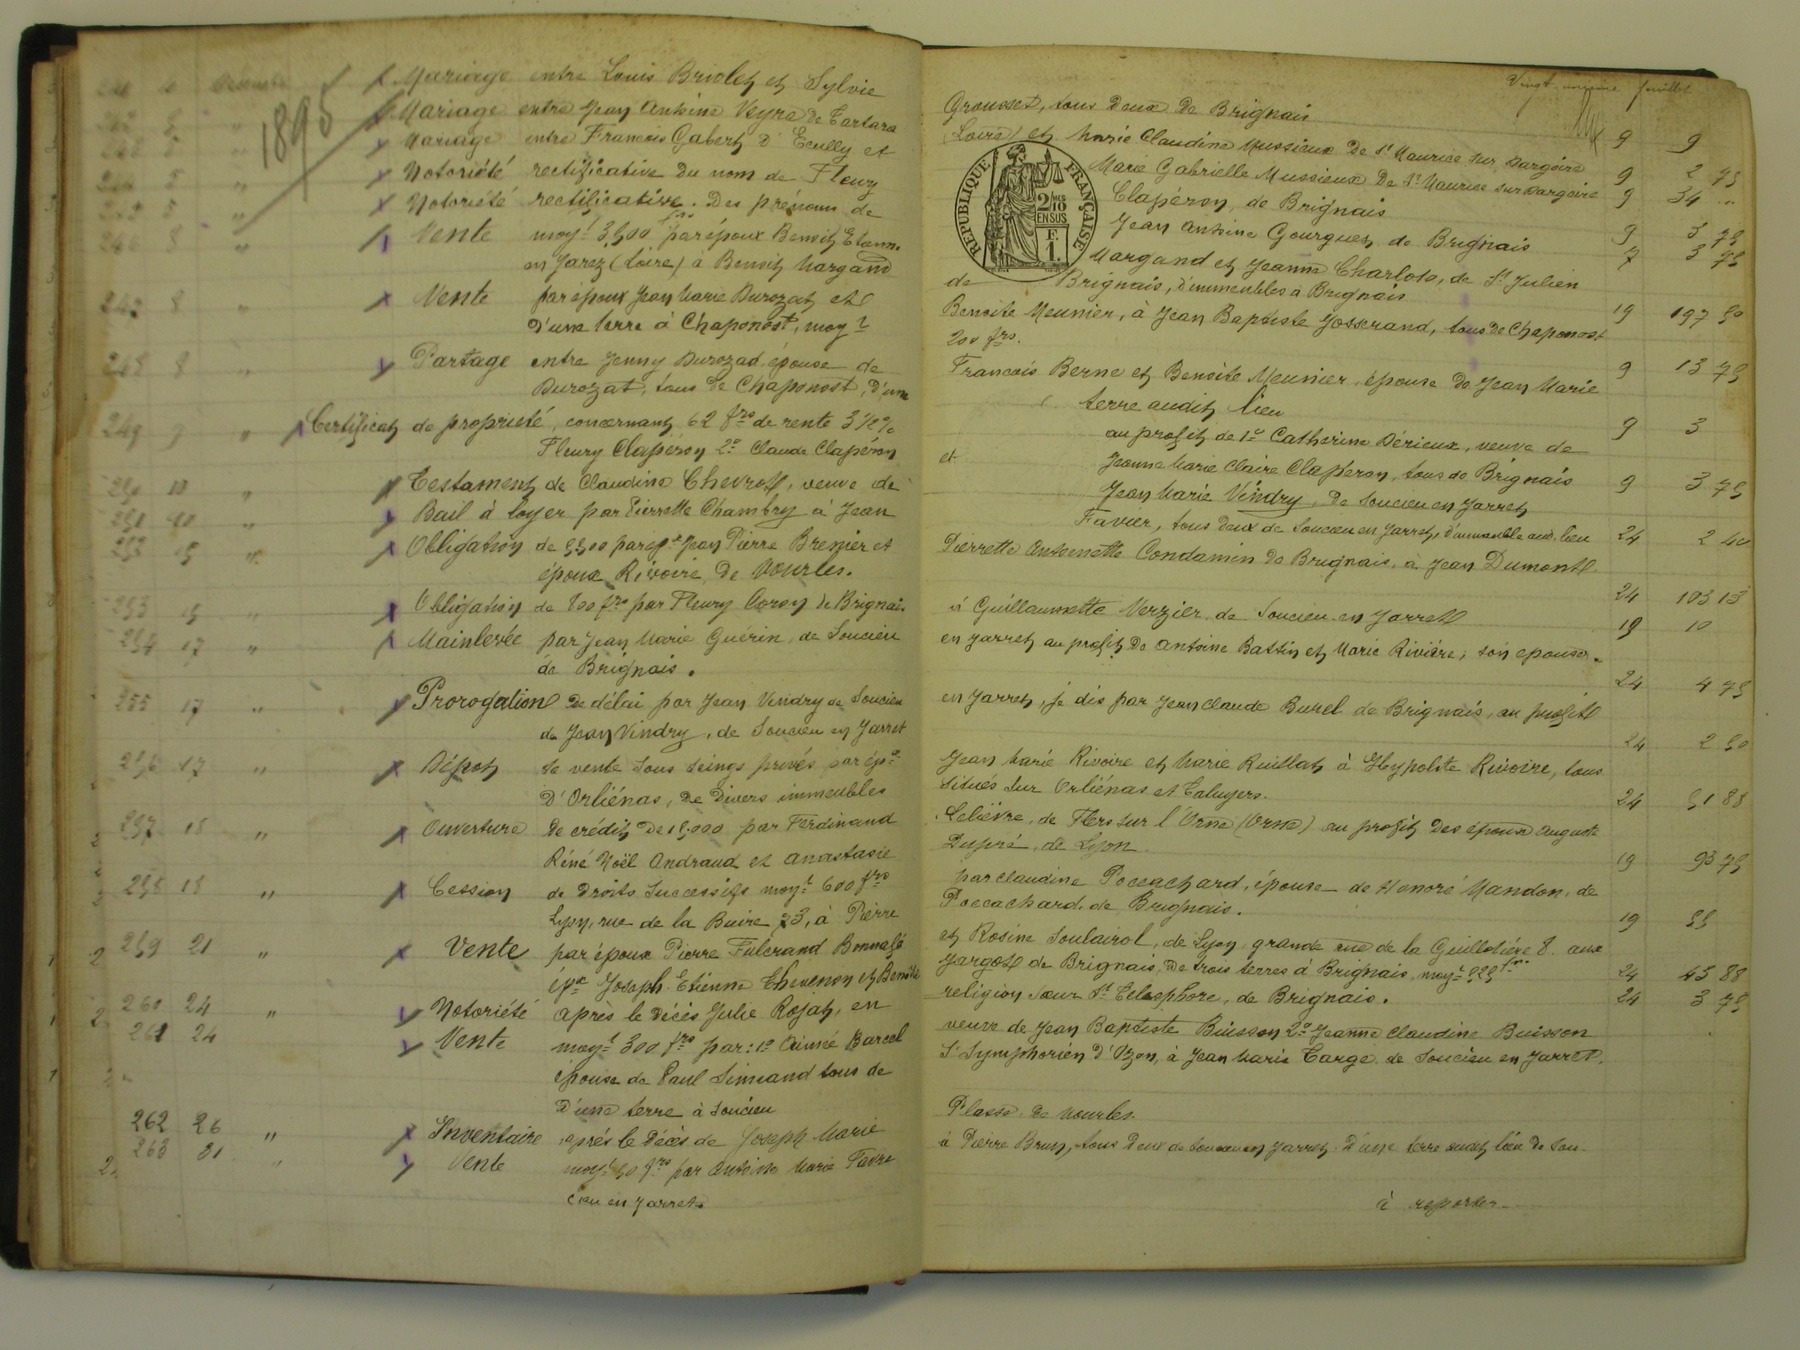 Vingt onzième feuillet
1895
Décembre Mariage entre Louis Briolet et Sylvie
Grousset, tous deux de Brignais 9 9
Mariage entre Jean Antoine Veyre de Tartara
(Loire) et Marie Claudine Mussieux de St Maurice sur Dargoire 9 2 75
Mariage entre Francois Gabert d'Ecully et
Marie Gabrielle Mussieux de St Maurice sur Dargoire 9 34 "
Notoriété rectificative du nom de Fleury
Clapéron, de Brignais 9 3 75
Notoriété rectificative. Des prénoms de
Jean Antoine Gourguet de Brignais 7 3 75
RÉPUBLIQUE FRANÇAISE
2/10 EN SUS
F. 1.
246 8 " Vente moyt 3,500 frs par époux Benoit Etienne
Margand et Jeanne Charlots, de St Julien
en Jarez (Loire) à Benoit Margand
de Brignais, d'immeubles à Brignais 19 197 50
247 8 " Vente par époux Jean Marie Durozat et
Benoite Meunier, à Jean Baptiste Josserand, tous de Chaponost
d'une terre à Chaponost, moyt
200 frs. 9 13 75
248 8 " Partage entre Jenny Durozad épouse de
Francois Berne et Benoite Meunier épouse de Jean Marie
Durozat, tous de Chaponost, d'une
terre audit lieu 9 3
249 9 " Certificat de proprieté, concernant 62 frs de rente 3 1/2 %
au profit de 1º Catherine Dérieux, veuve de
Fleury Clapéron 2º Claude Clapéron
et Jeanne Marie Claire Clapéron, tous de Brignais 9 3 75
250 10 " Testament de Claudine Chevrot, veuve de
Jean Marie Vindry, de Soucieu en Jarret
251 10 " Bail à loyer par Pierrette Chambry à Jean
Favier, tous deux de Soucieu en Jarret, d'immeuble aud. lieu 24 2 40
252 15 " Obligation de 5500 par ep.x Jean Pierre Brenier et
Pierrette Antoinette Condamin de Brignais, à Jean Dumont
époux Rivoire, de Vourles. 24 103 13
253 15 " Obligation de 800 frs par Fleury Coron de Brignais
à Guillaumette Verzier de Soucieu en Jarret 19 10
254 17 " Mainlevée par Jean Marie Guérin, de Soucieu
en Jarret au profit de Antoine Battin et Marie Rivière, son epouse.
de Brignais. 24 4 75
255 17 " Prorogation de délai par Jean Vindry de Soucieu
en Jarret, je dis par Jean Claude Burel de Brignais, au profit
de Jean Vindry, de Soucieu en Jarret 24 2 50
256 17 " Dépot de vente sous seings privés par ép.x
Jean Marie Rivoire et Marie Ruillat à Hypolite Rivoire, tous
d'Orliénas, de divers immeubles
situés sur Orliénas et Taluyers. 24 51 88
257 18 " Ouverture de crédit de 15,000 par Ferdinand
Lelièvre, de Flers sur l'Orne (Orne) au profit des époux Auguste
Réné Noël Andraud et Anastasie
Dupré, de Lyon. 19 93 75
258 18 " Cession de droits successifs moyt 600 frs
par Claudine Poccachard, épouse de Honoré Mandon, de
Lyon, rue de la Buire 23, à Pierre
Poccachard, de Brignais. 19 55
2 259 21 " Vente par époux Pierre Fulcrand Bonnafé
et Rosine Soulairol, de Lyon, grande rue de la Guillotière 8. aux
ép.x Joseph Etienne Thevenon et Benoite
Jargot de Brignais, de trois terres à Brignais, moyt 525 frs 24 45 88
2 260 24 " Notoriété après le décès Julie Rojat, en
religion Sœur St Télesphore, de Brignais. 24 3 75
261 24 Vente moyt 300 frs par: 1º Aimée Barcel
veuve de Jean Baptiste Buisson 2º Jeanne Claudine Buisson
épouse de Paul Simeand tous de
St Symphorien d'Ozon, à Jean Marie Targe de Soucieu en Jarret,
d'une terre à Soucieu
262 26 " Inventaire après le décès de Joseph Marie
Plasse, de Vourles
2 263 31 " Vente moyt 50 frs par Antoine Marie Favre
à Pierre Brun, tous deux de Soucieu en Jarret, d'une terre audit lieu de Sou-
cieu en Jarret
à reporter